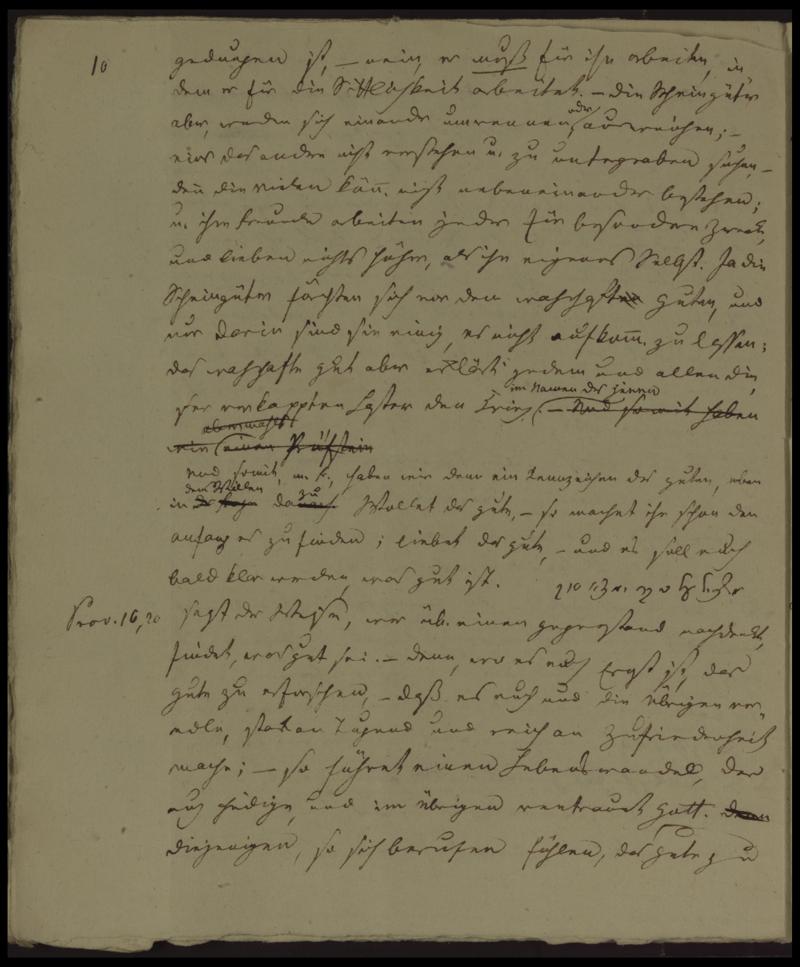 10
gedungen ist, – nein, er muß für ihn arbeiten, in
dem er für die Sittlichkeit arbeitet. – die Scheingüter
aber, werden sich einander umrennen, oder ausweichen; –
eins das andre nicht verstehen u. zu untergraben suchen, –
den die vielen könn. nicht nebeneinander bestehen;
u. ihre Freunde arbeiten jeder für besondere Zwecke,
und lieben nichts höher, als ihr eigenes Selbst. Ja die
Scheingüter fürchten sich vor dem wahrhaften guten, und
nur darin sind sie einig, es nicht aufkomm. zu lassen;
das wahrhafte gut aber erklärt jedem und allen
verkappten Laster den Krieg. – Und somit haben
im Namen des Herrn
wir einen Prüfstein
abermahls
und somit, m. Fr., haben wir denn ein Kennzeichen des guten, eben
in dem Willen dazu. Wollet das gute, – so machet ihr schon den
anfang es zu finden; liebet das gute, – und es soll euch
bald klar werden, was gut ist.
Prov. 16, 20
sagt der Weise, wer üb. einen gegenstand nachdenkt,
findet, was gut sei. – denn, wo es euch Ernst ist, das
gute zu erforschen, – daß es euch und die übrigen ver-
edle, stark an Tugend und reich an Zufriedenheit
mache; – so führet einen Lebenswandel, der
und im übrigen vertraut Gott. denn
diejenigen, so sich berufen fühlen, das gute zu